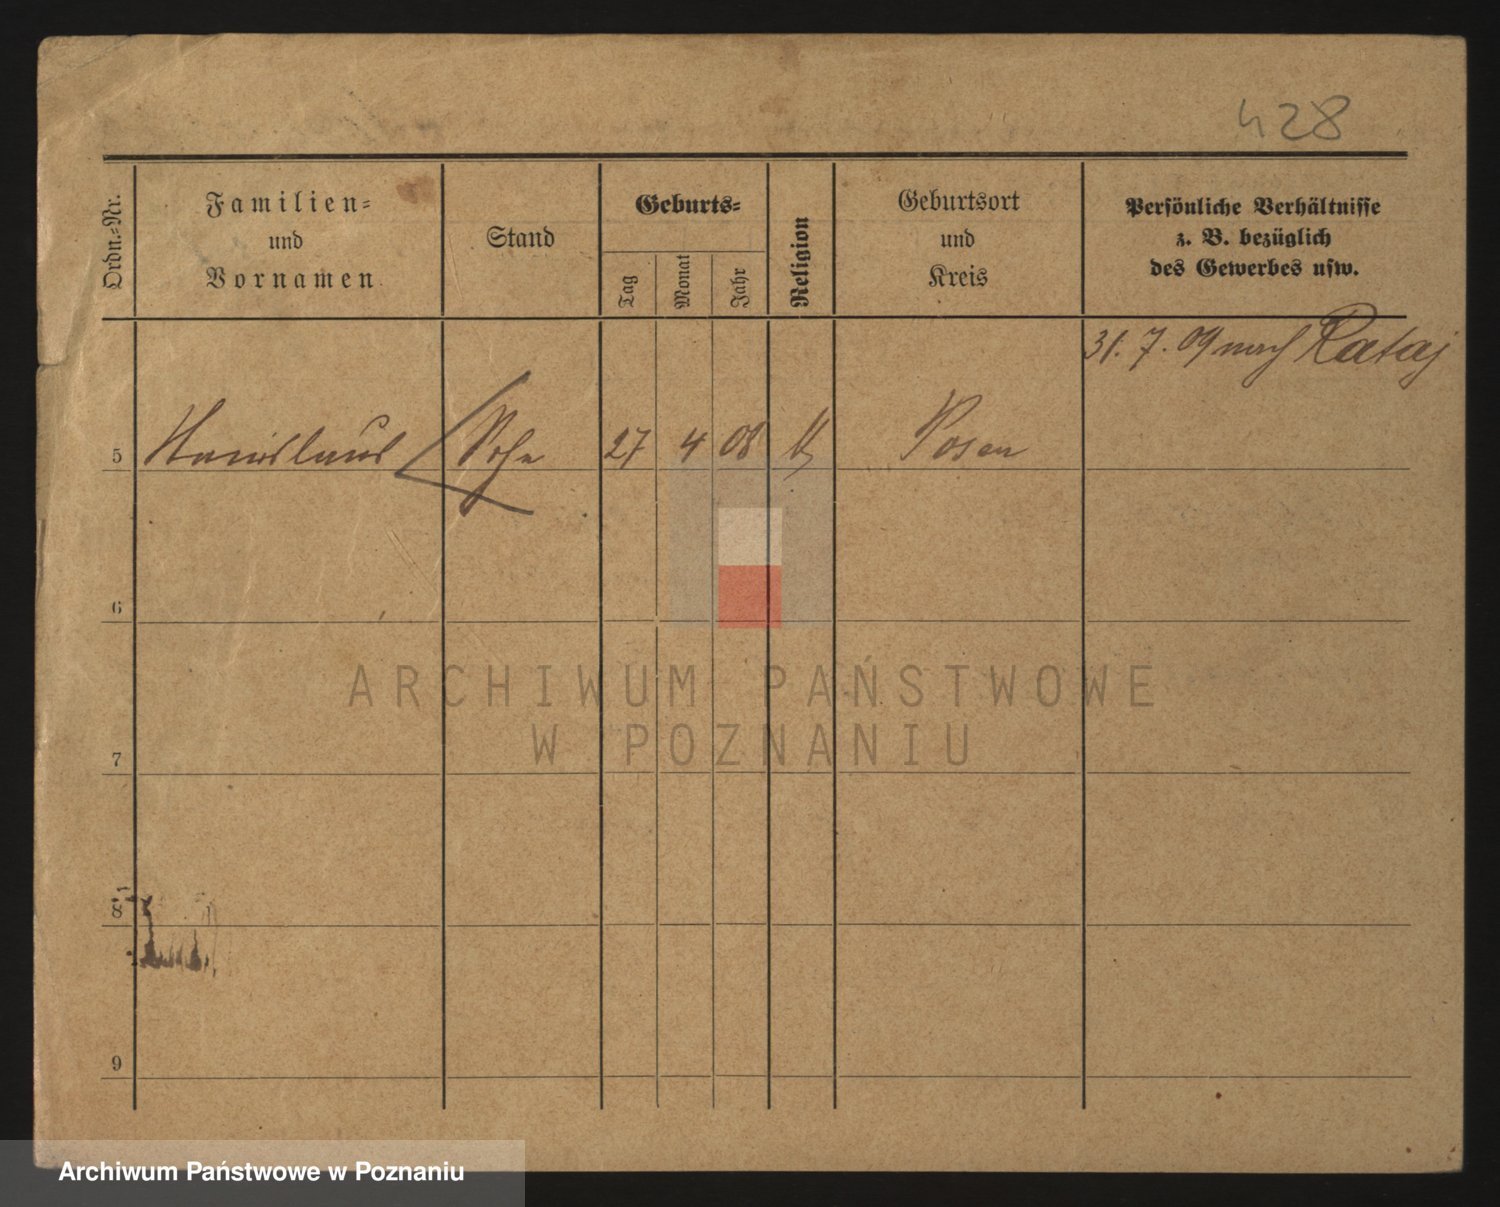 428
Ordn.-Nr.
Familien-
und
Vornamen
Stand
Geburts-
Tag
Monat
Jahr
Religion
Geburtsort
und
Kreis
Persönliche Verhältnisse
z. B. bezüglich
des Gewerbes usw.
31. 7. 09 nach Rataj
5 Stanislaus Sohn 27 4 08 Posen
6
7
8
9
ARCHIWUM PAŃSTWOWE
W POZNANIU
Archiwum Państwowe w Poznaniu